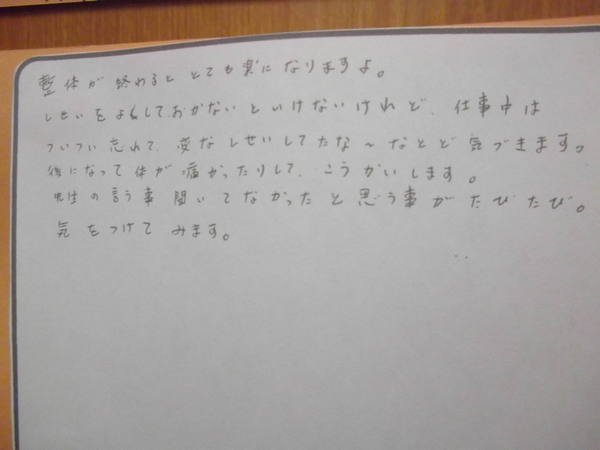 整体が終わるととても楽になりますよ。
しせいをよくしておかないといけないけれど、仕事中は
ついつい忘れて、変なしせいしてたな～などと気づきます。
後になって体が痛かったりして、こうかいします。
先生の言う事聞いてなかったと思う事がたびたび。
気をつけてみます。